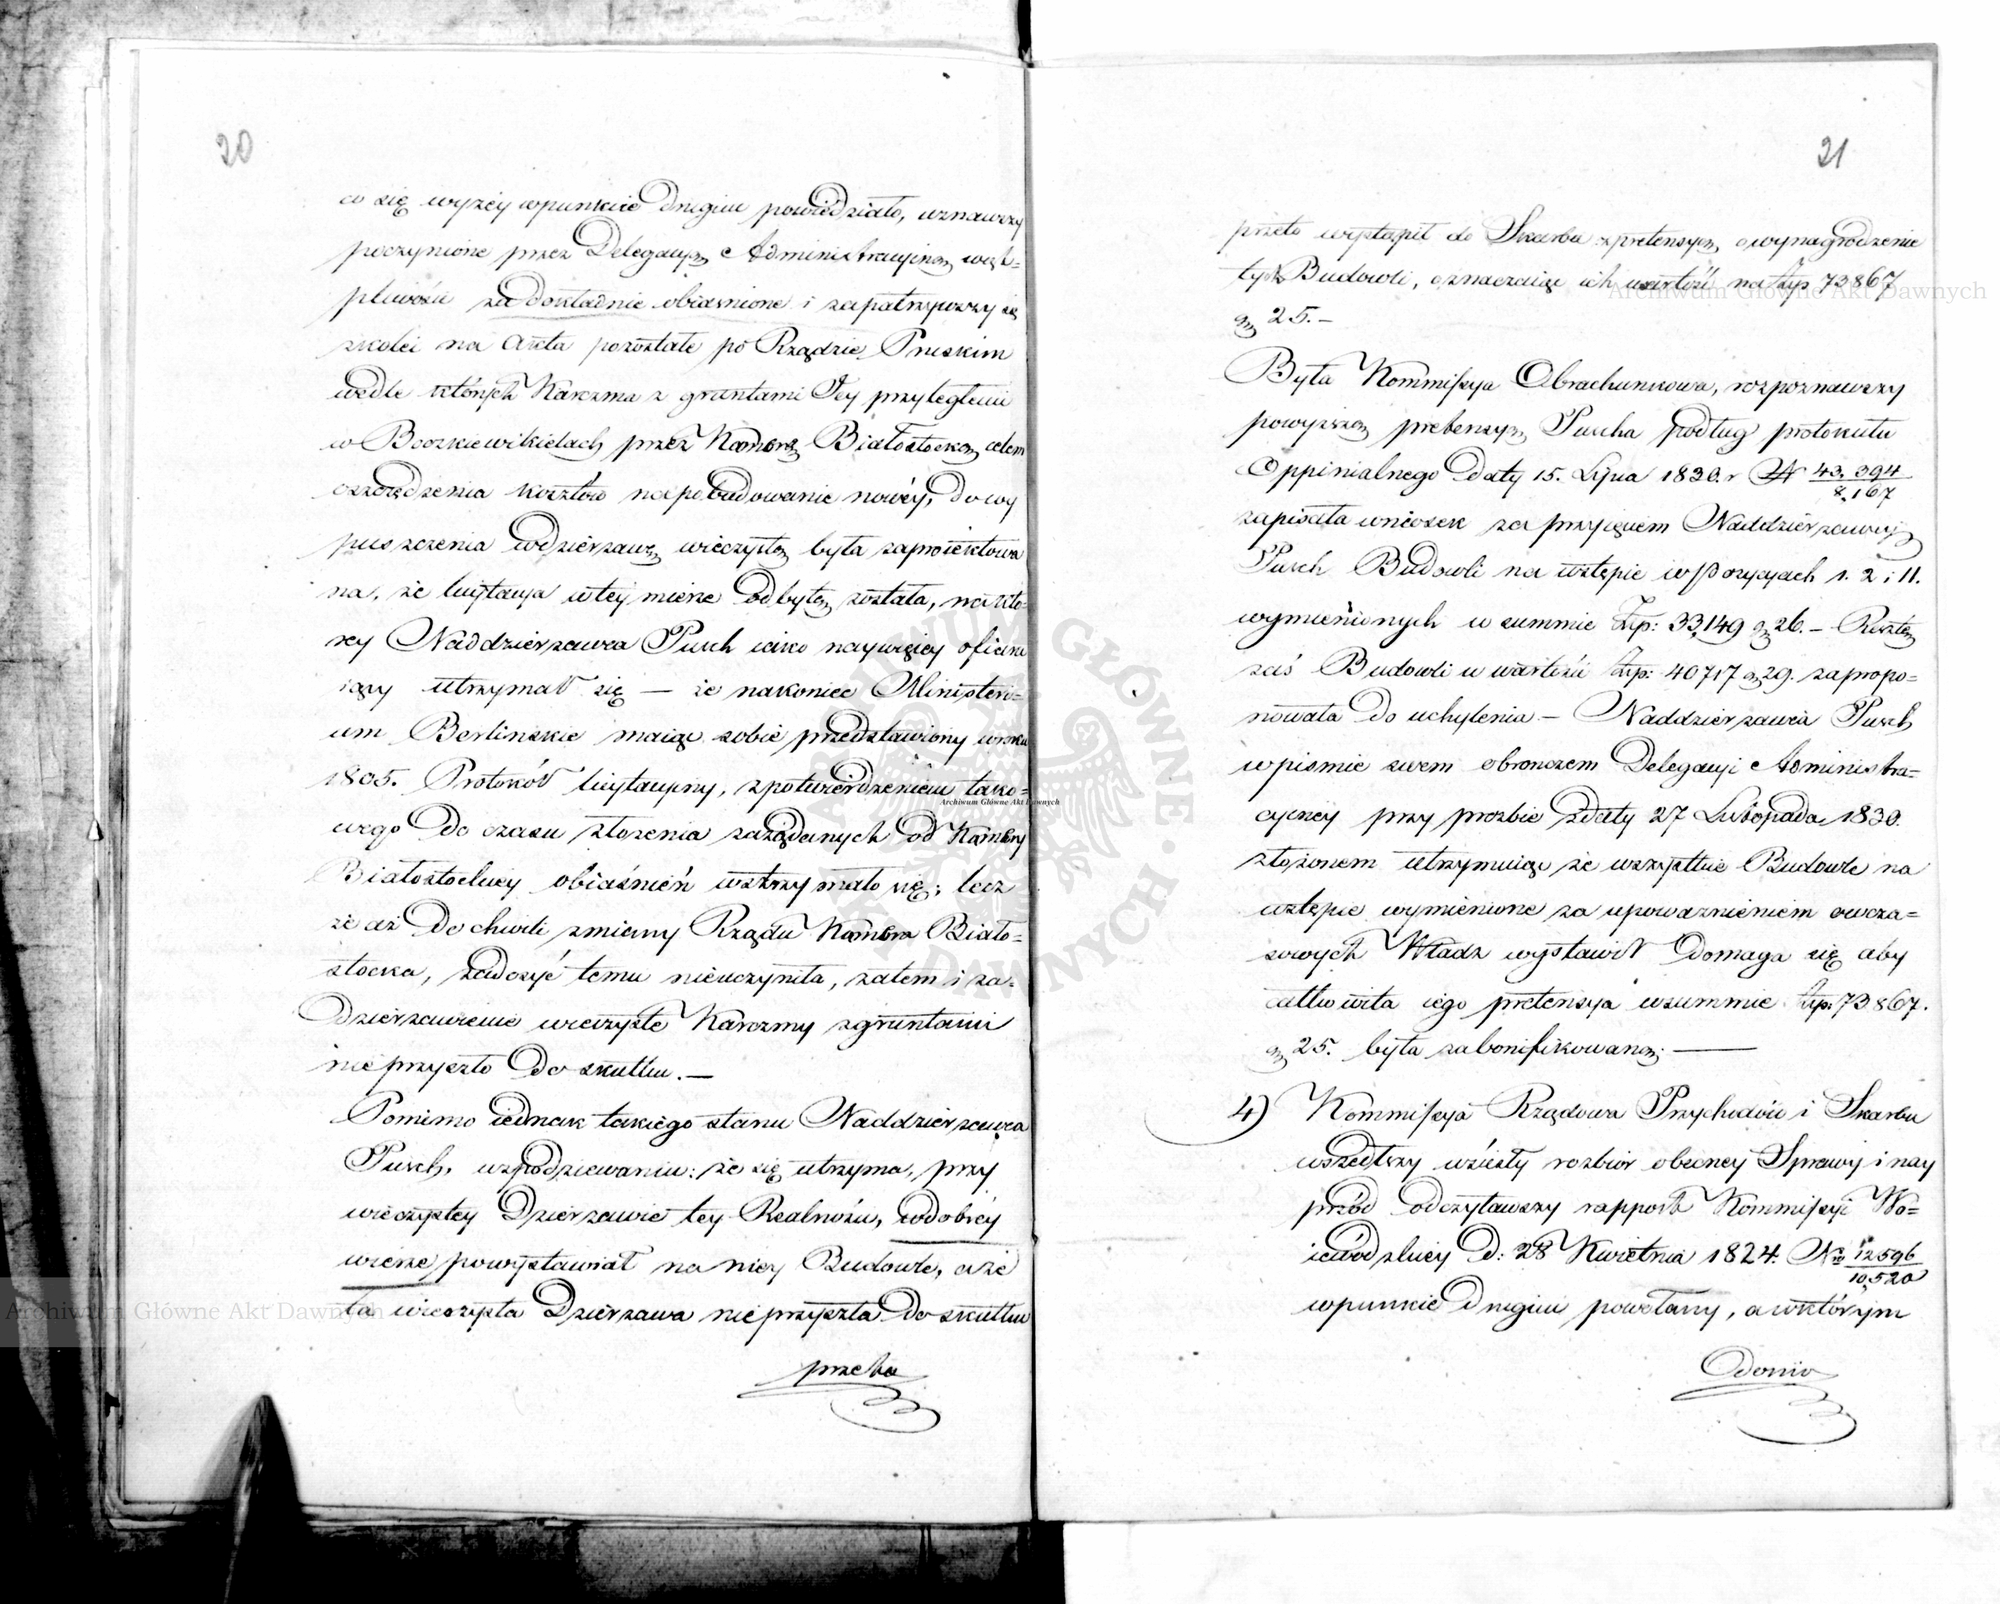 20
co się wyżey wpunkcie drugim powiedziało, uznawszy
poczynione przez Delegacyą Administracyiną wąt-
pliwości za dokładnie obiasnione i zapatrzywszy się
zkolei na Akta pozostałe po Rządzie Pruskim
wedle których Karczma z gruntami Jey przyległemi
w Boczkiewikielach przez Kamerę Białostocką celem
oszczędzenia kosztów napobudowanie nowéy, do wy
puszczenia wdzierzawę wieczystą była zaproiektowa
na, że licytacya wtey mierze odbytą została, na któ-
rey Naddzierzawca Pusch iako naywięcey ofiaru
iący utrzymał się — że nakoniec Ministeri-
um Berlinskie maiąc sobie przedstawiony wroku
1805. Protokół licytacyiny, zpotwierdzeniem tako-
wego do czasu złożenia zażądanych od Kamery
Białostockiey obiaśnień wstrzymało się; lecz
że aż do chwili zmiany Rządu Kamera Biało-
stocka, zadosyć temu nieuczyniła, zatem i za-
dzierzawienie wieczyste Karczmy zgruntami
nieprzyszło do skutku. —
Pomimo iednak takiego stanu Naddzierzawca
Pusch, wspodziewaniu: że się utrzyma, przy
wieczystey Dzierzawie tey Realności, wdobréy
wierze powystawiał na niey Budowle, a że
ta wieczysta Dzierzawa nieprzyszła do skutku
przeto
21
przeto wystąpił do Skarbu zpretensyą owynagrodzenie
tych Budowli, oznaczaiąc ich wartość na Złp 73867
gr 25. —
Była Kommissya Obrachunkowa, rozpoznawszy
powyższą pretensyą Puscha podług protokułu
Oppinialnego daty 15. Lipca 1830. r N 43,394/8,167
zapisała wniosek za przyięciem Naddzierzawcy
Pusch Budowli na wstępie w Pozycyach 1. 2 i 11.
wymienionych w summie Złp: 33,149 gr 26. — Resztę
zaś Budowli w wartości Złp: 40717 gr 29. zapropo-
nowała do uchylenia — Naddzierzawca Pusch
wpismie swem obronczem Delegacyi Administra-
cyiney przy prozbie zdaty 27 Listopada 1830.
złożonem utrzymuiąc że wszystkie Budowle na
wstępie wymienione za upoważnieniem owcza-
sowych Władz wystawił domaga się aby
całkowita iego pretensya wsummie Złp: 73867.
gr 25. była zabonifikowaną; —
4) Kommissya Rządowa Przychodów i Skarbu
wszedłszy wścisły rozbiór obecney Sprawy i nay
przód odczytawszy rapport Kommissyi Wo-
iewódzkiey d: 28 Kwietnia 1824. Nro 12596/10,520
wpunkcie drugim powołany, a wktórym
donio
Archiwum Główne Akt Dawnych
Archiwum Główne Akt Dawnych
Archiwum Główne Akt Dawnych
ARCHIWUM GŁÓWNE · AKT DAWNYCH ·